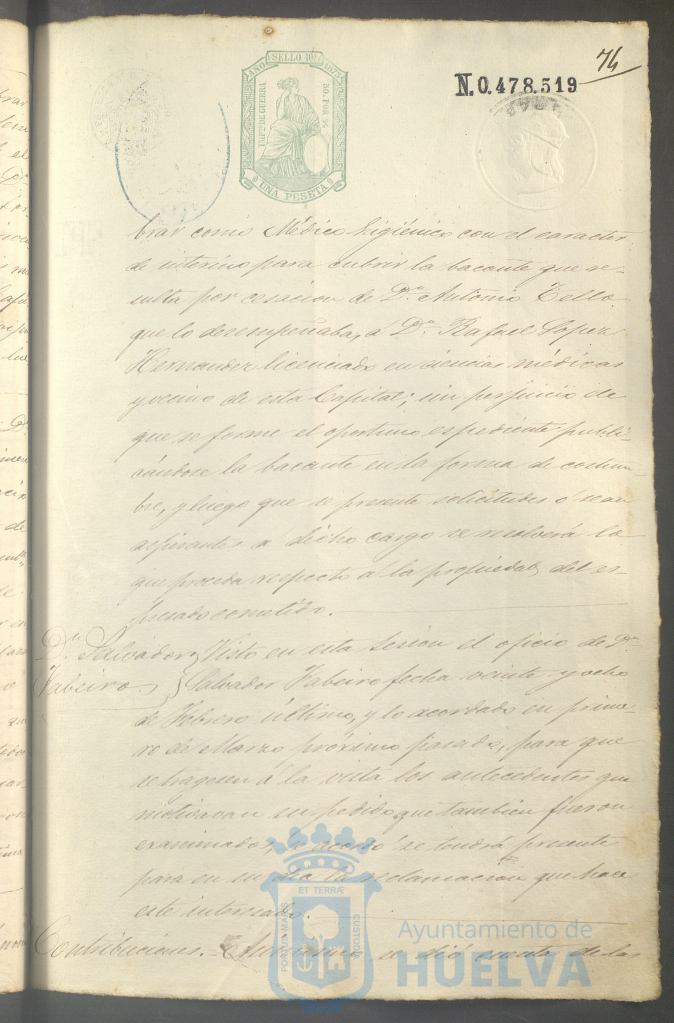 74
N.0.478.519
AÑO SELLO 10º 1875
IMPº DE GUERRA
50 POR %
UNA PESETA
brar como Médico higiénico con el caracter
de interino para cubrir la bacante que re-
sulta por cesacion de Dn. Antonio Tello
que lo desempeñaba, a Dn. Rafael Lopez
Hernandez licenciado en ciencias médicas
y vecino de esta Capital; sin perjuicio de
que se forme el oportuno espediente publi-
cándose la bacante en la forma de costum-
bre, y luego que se presente solicitudes ó sean
aspirantes a dicho cargo se resolverá lo
que proceda respecto á la propiedad del es-
presado cometido.
Dn. Salvador Visto en esta sesion el oficio de Dn.
Fabeiro Salvador Fabeiro fecha veinte y ocho
de Febrero último, y lo acordado en prime-
ro de Marzo próximo pasado, para que
se tragesen á la vista los antecedentes que
motivavan su pedido, que tambien fueron
examinados, se acordó se tendrá presente
para en su dia la reclamacion que hace
este interesado.
Contribuciones. se dió cuenta de las
PORTUS MARIS
ET TERRÆ
CUSTODIA
Ayuntamiento de
HUELVA